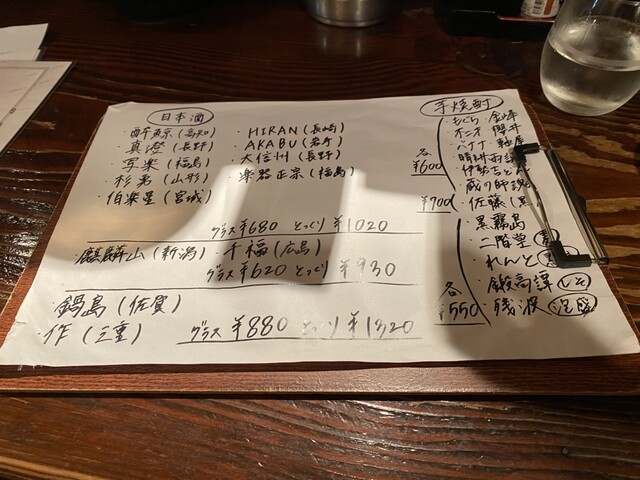 日本酒
・酔鯨(高知)
・真澄(長野)
・写楽(福島)
・杉勇(山形)
・伯楽星(宮城)
・HIRAN(長崎)
・AKABU(岩手)
・大信州(長野)
・楽器正宗(福島)
グラス ¥680 とっくり ¥1020
麒麟山(新潟)・千福(広島)
グラス ¥620 とっくり ¥930
・鍋島(佐賀)
・作(三重)
グラス ¥880 とっくり ¥1320
芋焼酎
・もぐら
・オニオ 櫻井
・バナナ
・晴耕雨読
・伊勢吉どん
・蔵の師魂
各
¥600
・佐藤(黒)
¥700
・黒霧島
・二階堂
・れんと
・鍛高譚 シソ
・残波 泡盛
各
¥550